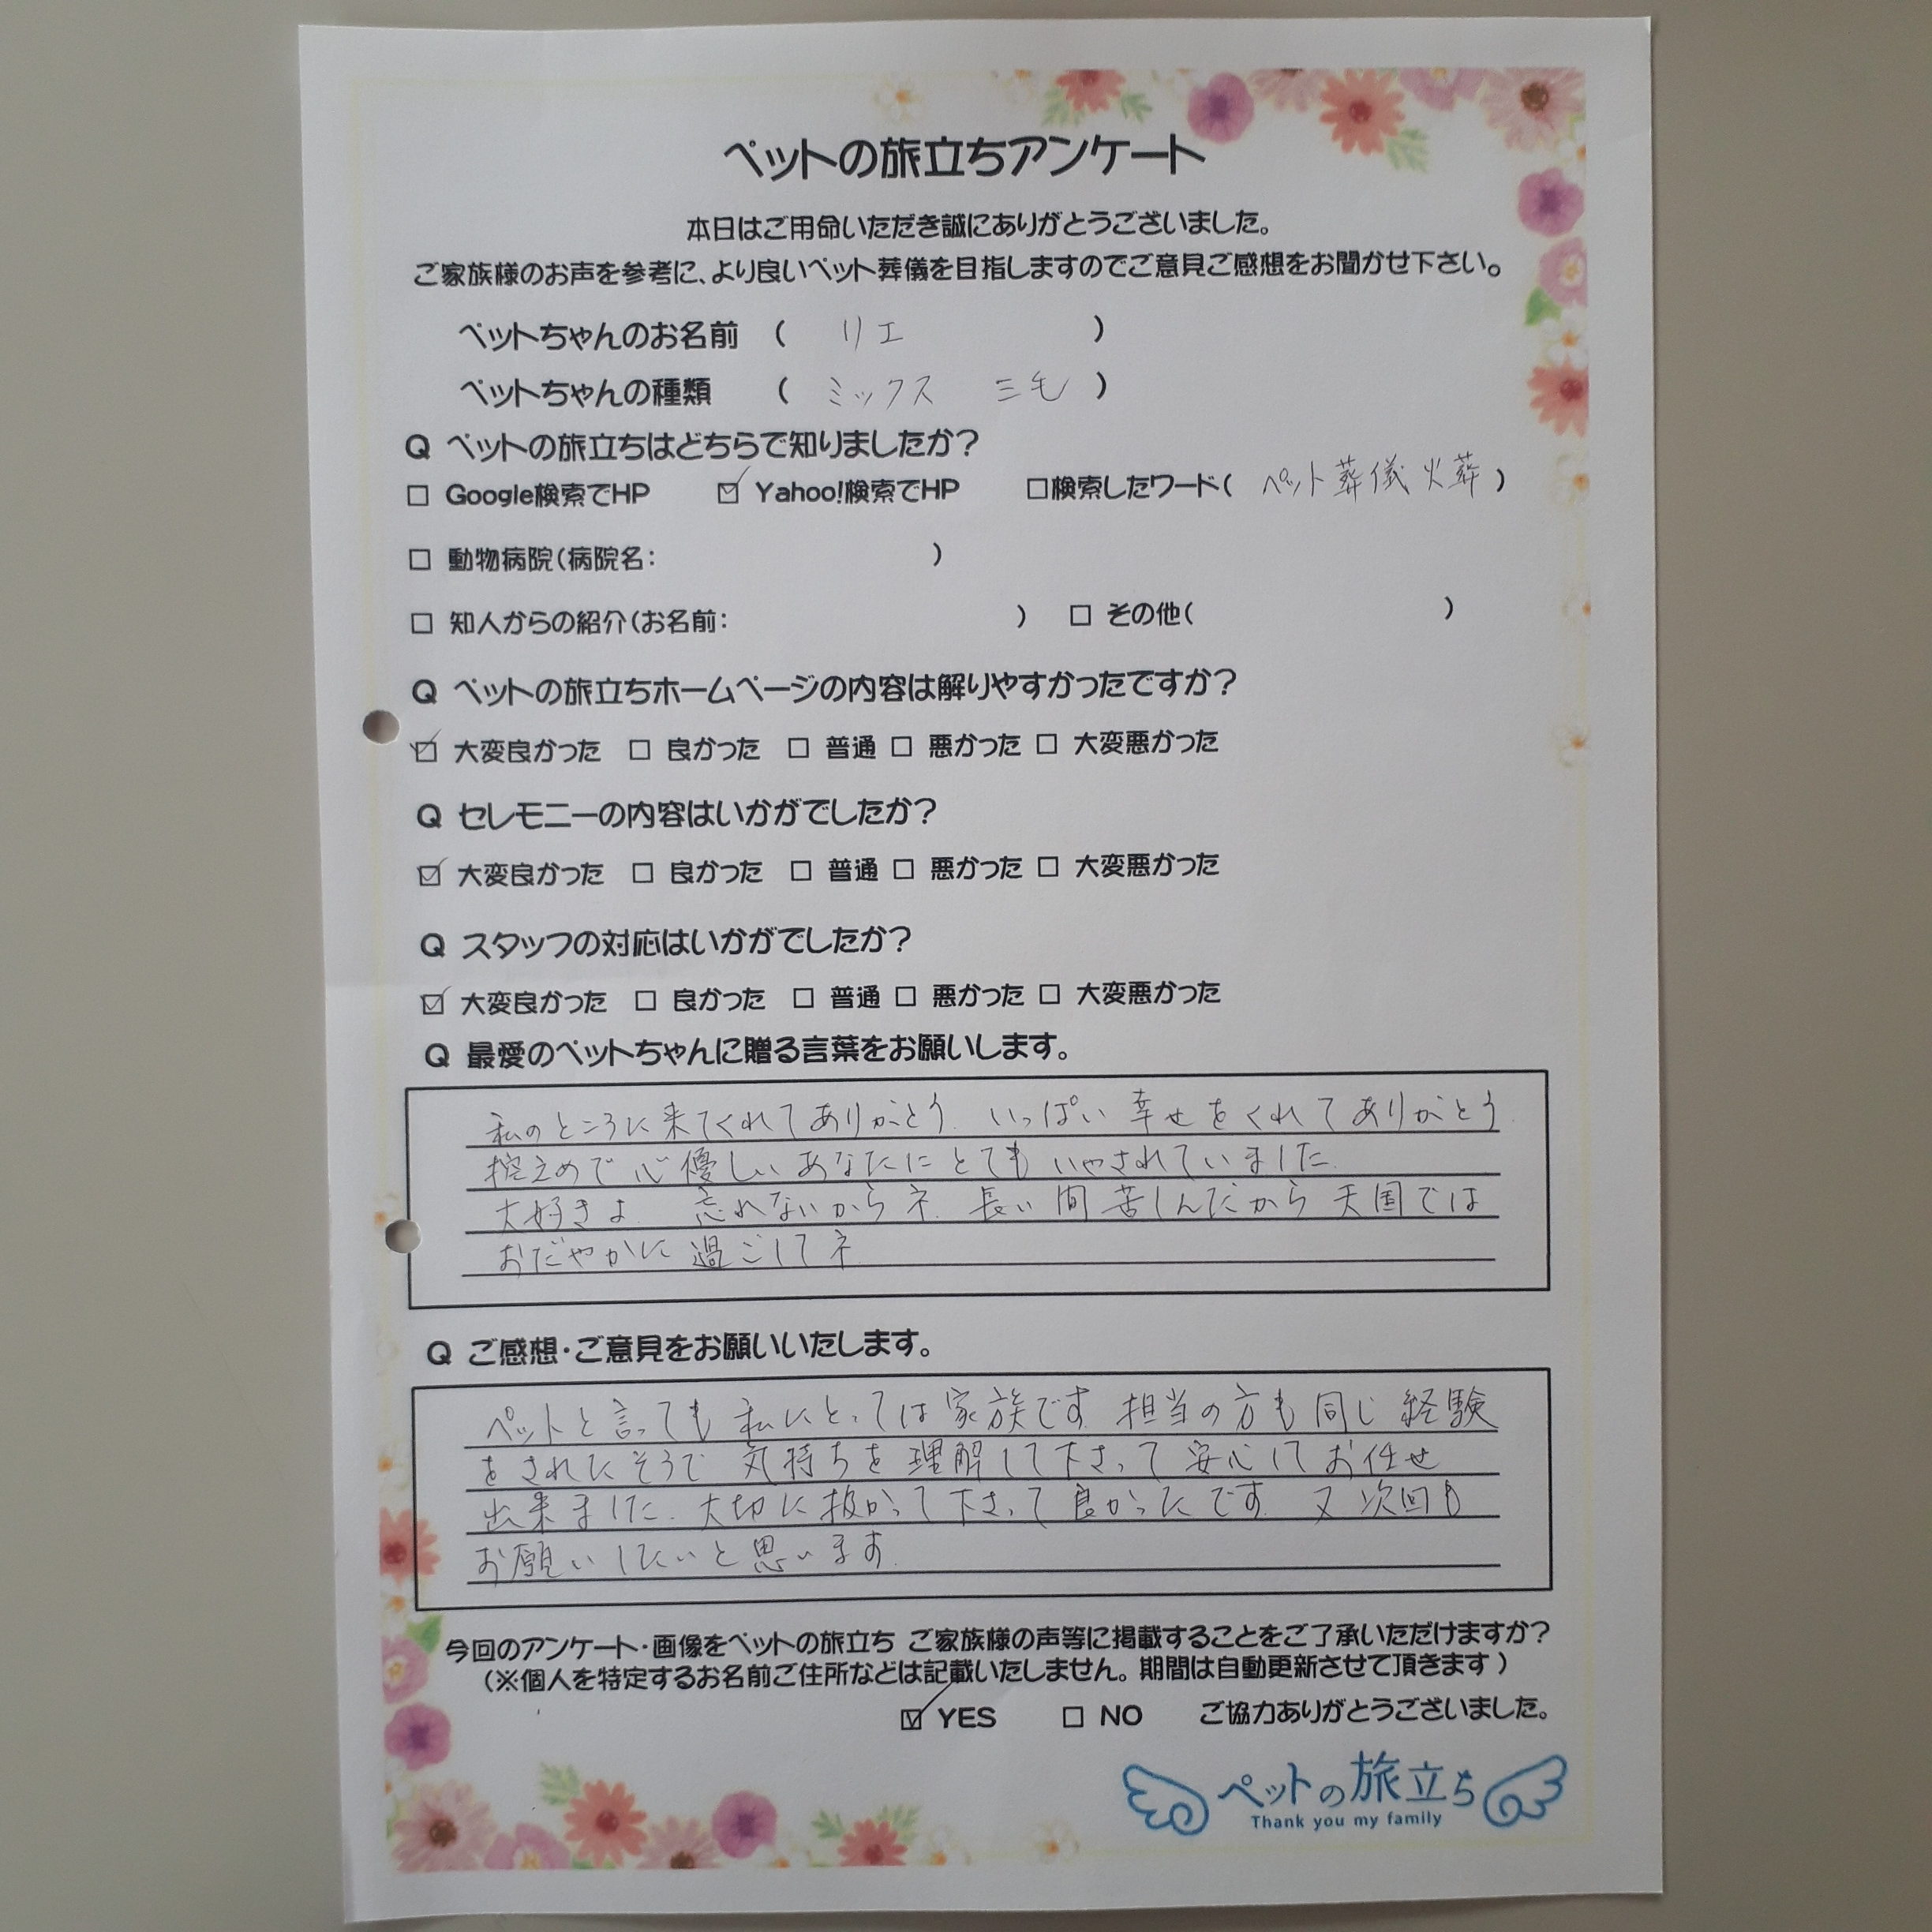 ペットの旅立ちアンケート
本日はご用命いただき誠にありがとうございました。
ご家族様のお声を参考に、より良いペット葬儀を目指しますのでご意見ご感想をお聞かせ下さい。
ペットちゃんのお名前 ( リエ )
ペットちゃんの種類 ( ミックス 三毛 )
Q ペットの旅立ちはどちらで知りましたか?
□ Google検索でHP ☑ Yahoo!検索でHP □検索したワード( ペット葬儀 火葬 )
□ 動物病院(病院名: )
□ 知人からの紹介(お名前: ) □ その他( )
Q ペットの旅立ちホームページの内容は解りやすかったですか?
☑ 大変良かった □ 良かった □ 普通 □ 悪かった □ 大変悪かった
Q セレモニーの内容はいかがでしたか?
☑ 大変良かった □ 良かった □ 普通 □ 悪かった □ 大変悪かった
Q スタッフの対応はいかがでしたか?
☑ 大変良かった □ 良かった □ 普通 □ 悪かった □ 大変悪かった
Q 最愛のペットちゃんに贈る言葉をお願いします。
私のところに来てくれてありがとう. いっぱい幸せをくれてありがとう.
控えめで心優しいあなたにとてもいやされていました.
大好きよ. 忘れないからネ. 長い間苦しんだから天国では
おだやかに過ごしてネ.
Q ご感想・ご意見をお願いいたします。
ペットと言っても私にとっては家族です. 担当の方も同じ経験
をされたそうで気持ちを理解して下さって安心してお任せ
出来ました. 大切に扱かって下さって良かったです. 又次回も
お願いしたいと思います.
今回のアンケート・画像をペットの旅立ち ご家族様の声等に掲載することをご了承いただけますか?
(※個人を特定するお名前ご住所などは記載いたしません。期間は自動更新させて頂きます)
☑ YES □ NO ご協力ありがとうございました。
ペットの旅立ち
Thank you my family